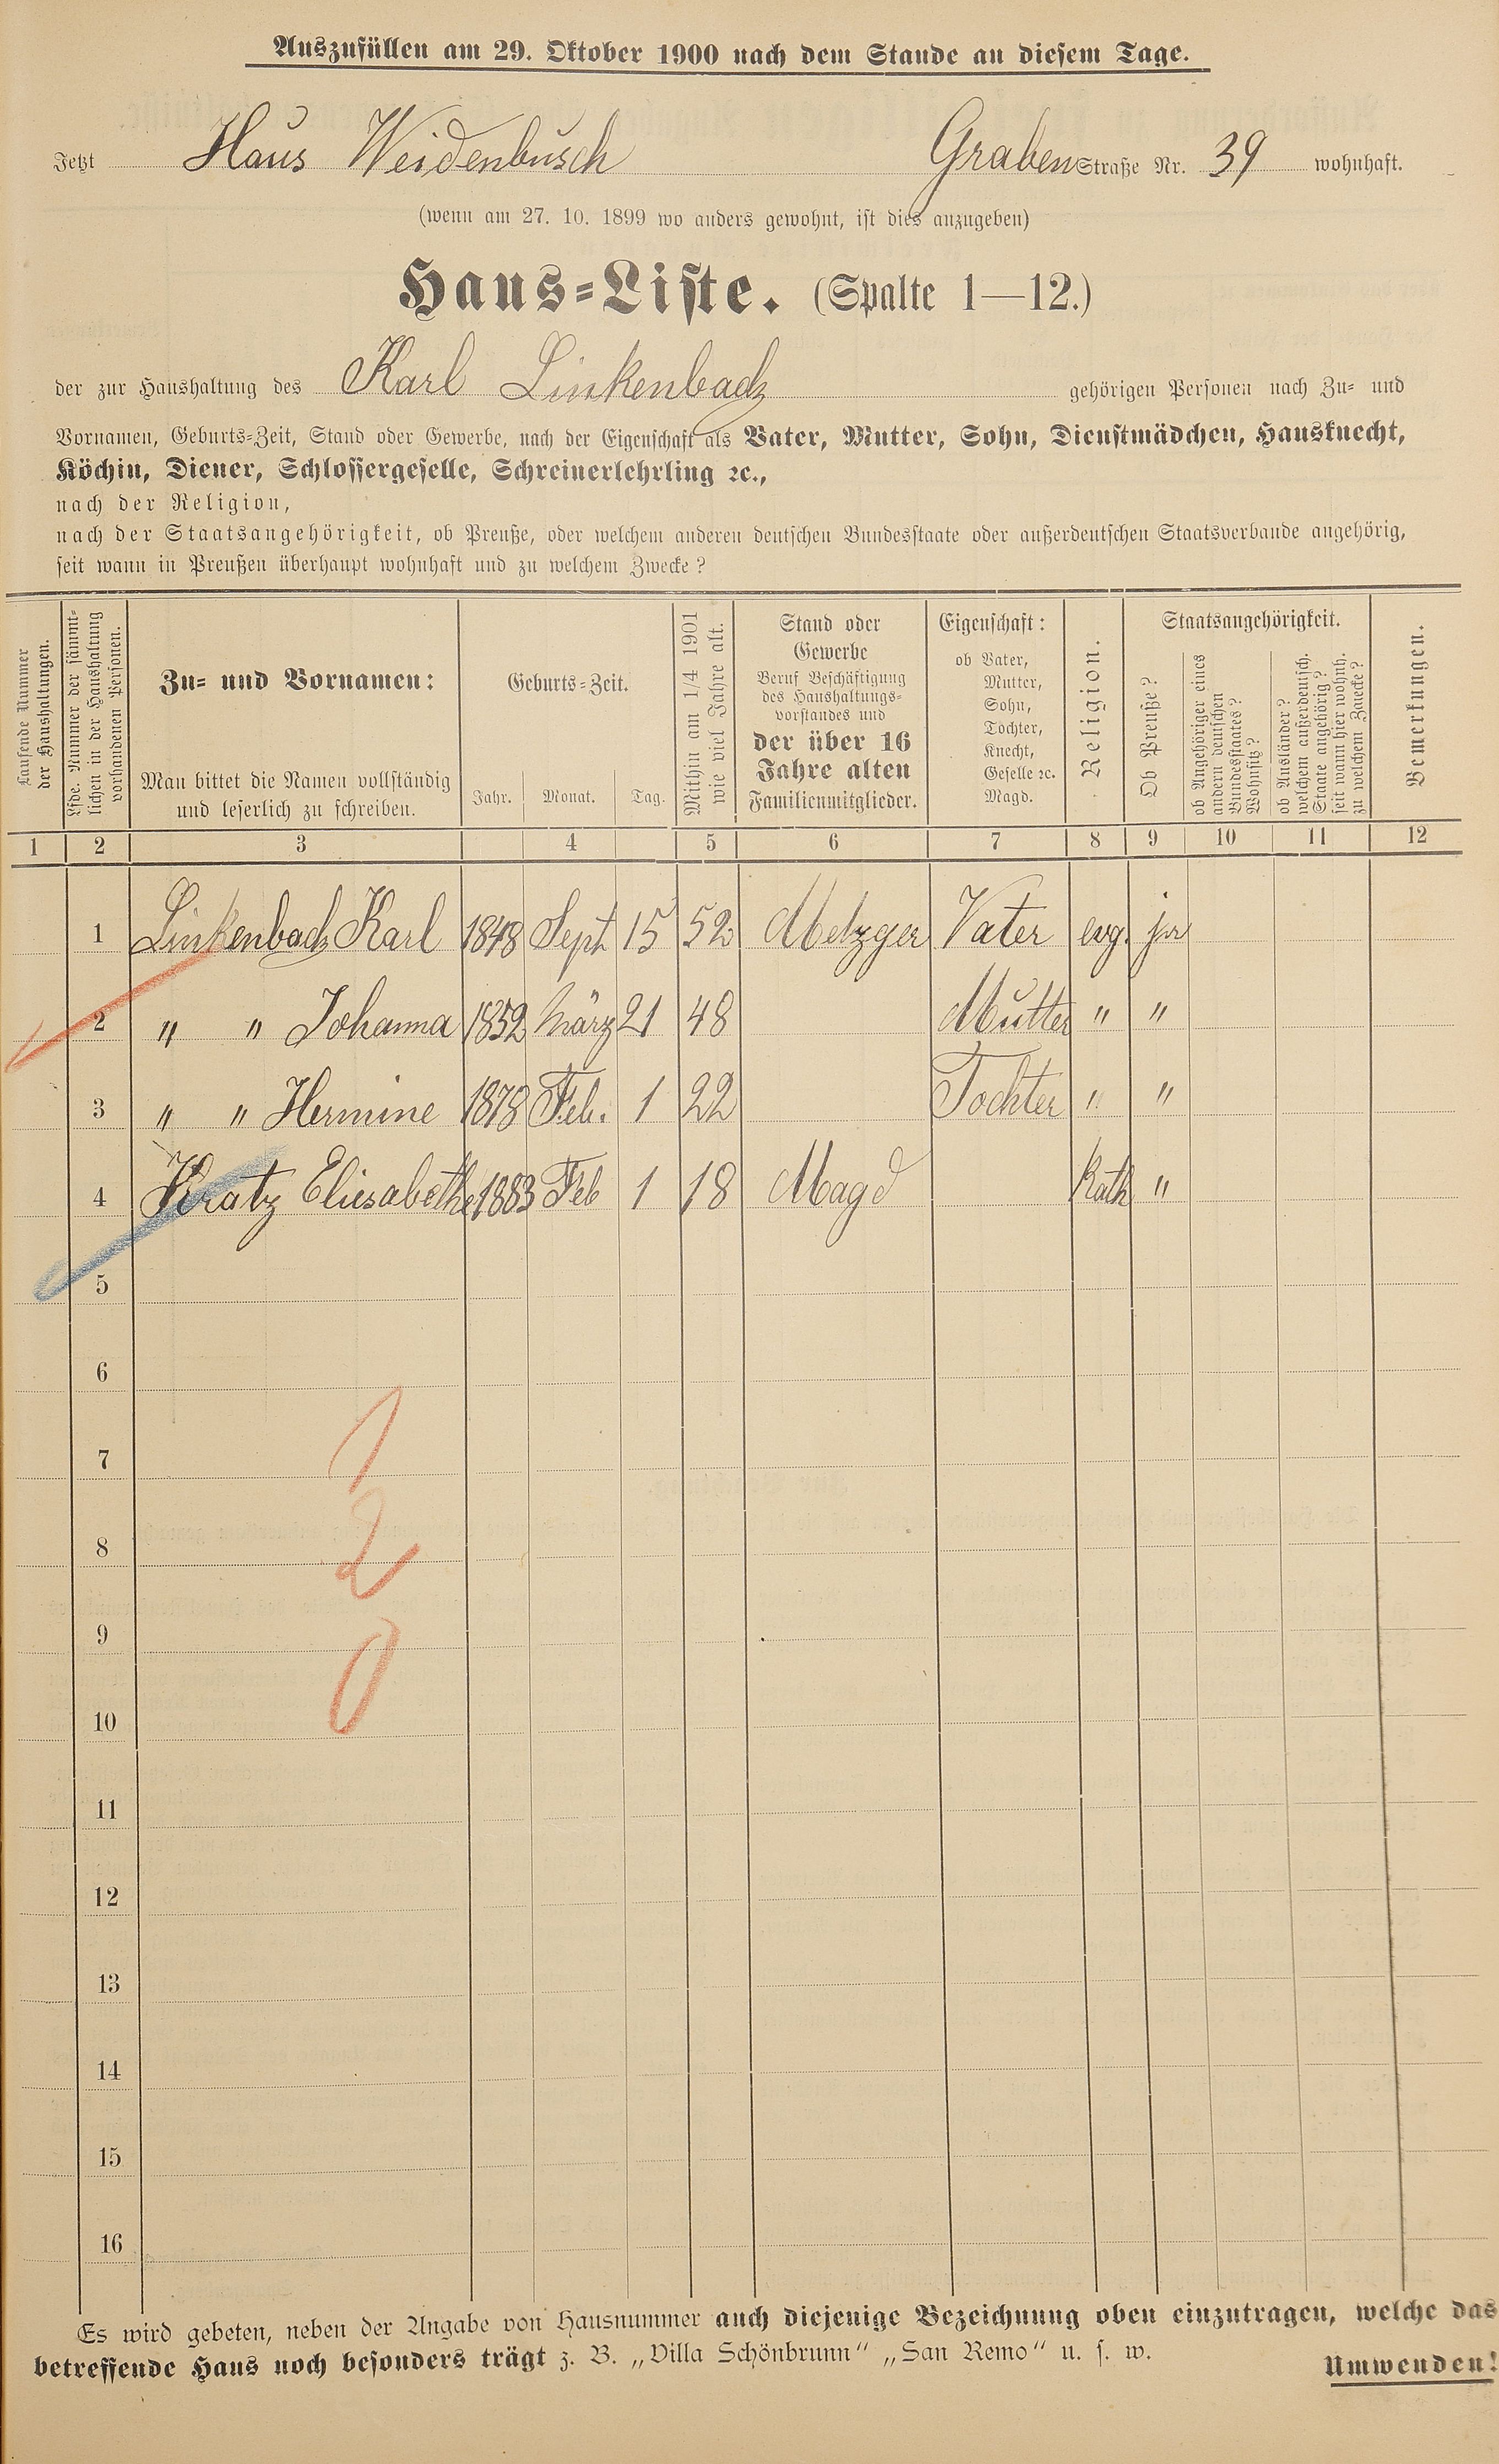 Auszufüllen am 29. Oktober 1900 nach dem Stande an diesem Tage.
Jetzt Haus Weidenbusch Graben Straße Nr. 39 wohnhaft.
(wenn am 27. 10. 1899 wo anders gewohnt, ist dies anzugeben)
Haus-Liste. (Spalte 1—12.)
der zur Haushaltung des Karl Linkenbach gehörigen Personen nach Zu- und
Vornamen, Geburts-Zeit, Stand oder Gewerbe, nach der Eigenschaft als Vater, Mutter, Sohn, Dienstmädchen, Hausknecht,
Köchin, Diener, Schlossergeselle, Schreinerlehrling ꝛc.,
nach der Religion,
nach der Staatsangehörigkeit, ob Preuße, oder welchem anderen deutschen Bundesstaate oder außerdeutschen Staatsverbande angehörig,
seit wann in Preußen überhaupt wohnhaft und zu welchem Zwecke?
Laufende Nummer
der Haushaltungen.
Lfde. Nummer der sämmt-
lichen in der Haushaltung
vorhandenen Personen.
Zu- und Vornamen:
Man bittet die Namen vollständig
und leserlich zu schreiben.
Geburts-Zeit.
Jahr. Monat. Tag.
Mithin am 1/4 1901
wie viel Jahre alt.
Stand oder
Gewerbe
Beruf Beschäftigung
des Haushaltungs-
vorstandes und
der über 16
Jahre alten
Familienmitglieder.
Eigenschaft:
ob Vater,
Mutter,
Sohn,
Tochter,
Knecht,
Geselle ꝛc.
Magd.
Religion.
Staatsangehörigkeit.
Ob Preuße?
ob Angehöriger eines
andern deutschen
Bundesstaates?
Wohnsitz?
ob Ausländer?
welchem außerdeutsch.
Staate angehörig?
seit wann hier wohnh.
zu welchem Zwecke?
Bemerkungen.
1 2 3 4 5 6 7 8 9 10 11 12
1 Linkenbach Karl 1848 Sept 15 52 Metzger Vater evg. ja
2 " " Johanna 1852 März 21 48 Mutter " "
3 " " Hermine 1878 Feb. 1 22 Tochter " "
4 Kratz Eliesabethe 1883 Feb 1 18 Magd Kath "
5
6
7
1
8
2
9
0
10
11
12
13
14
15
16
Es wird gebeten, neben der Angabe von Hausnummer auch diejenige Bezeichnung oben einzutragen, welche das
betreffende Haus noch besonders trägt z. B. „Villa Schönbrunn" „San Remo" u. s. w.
Umwenden!